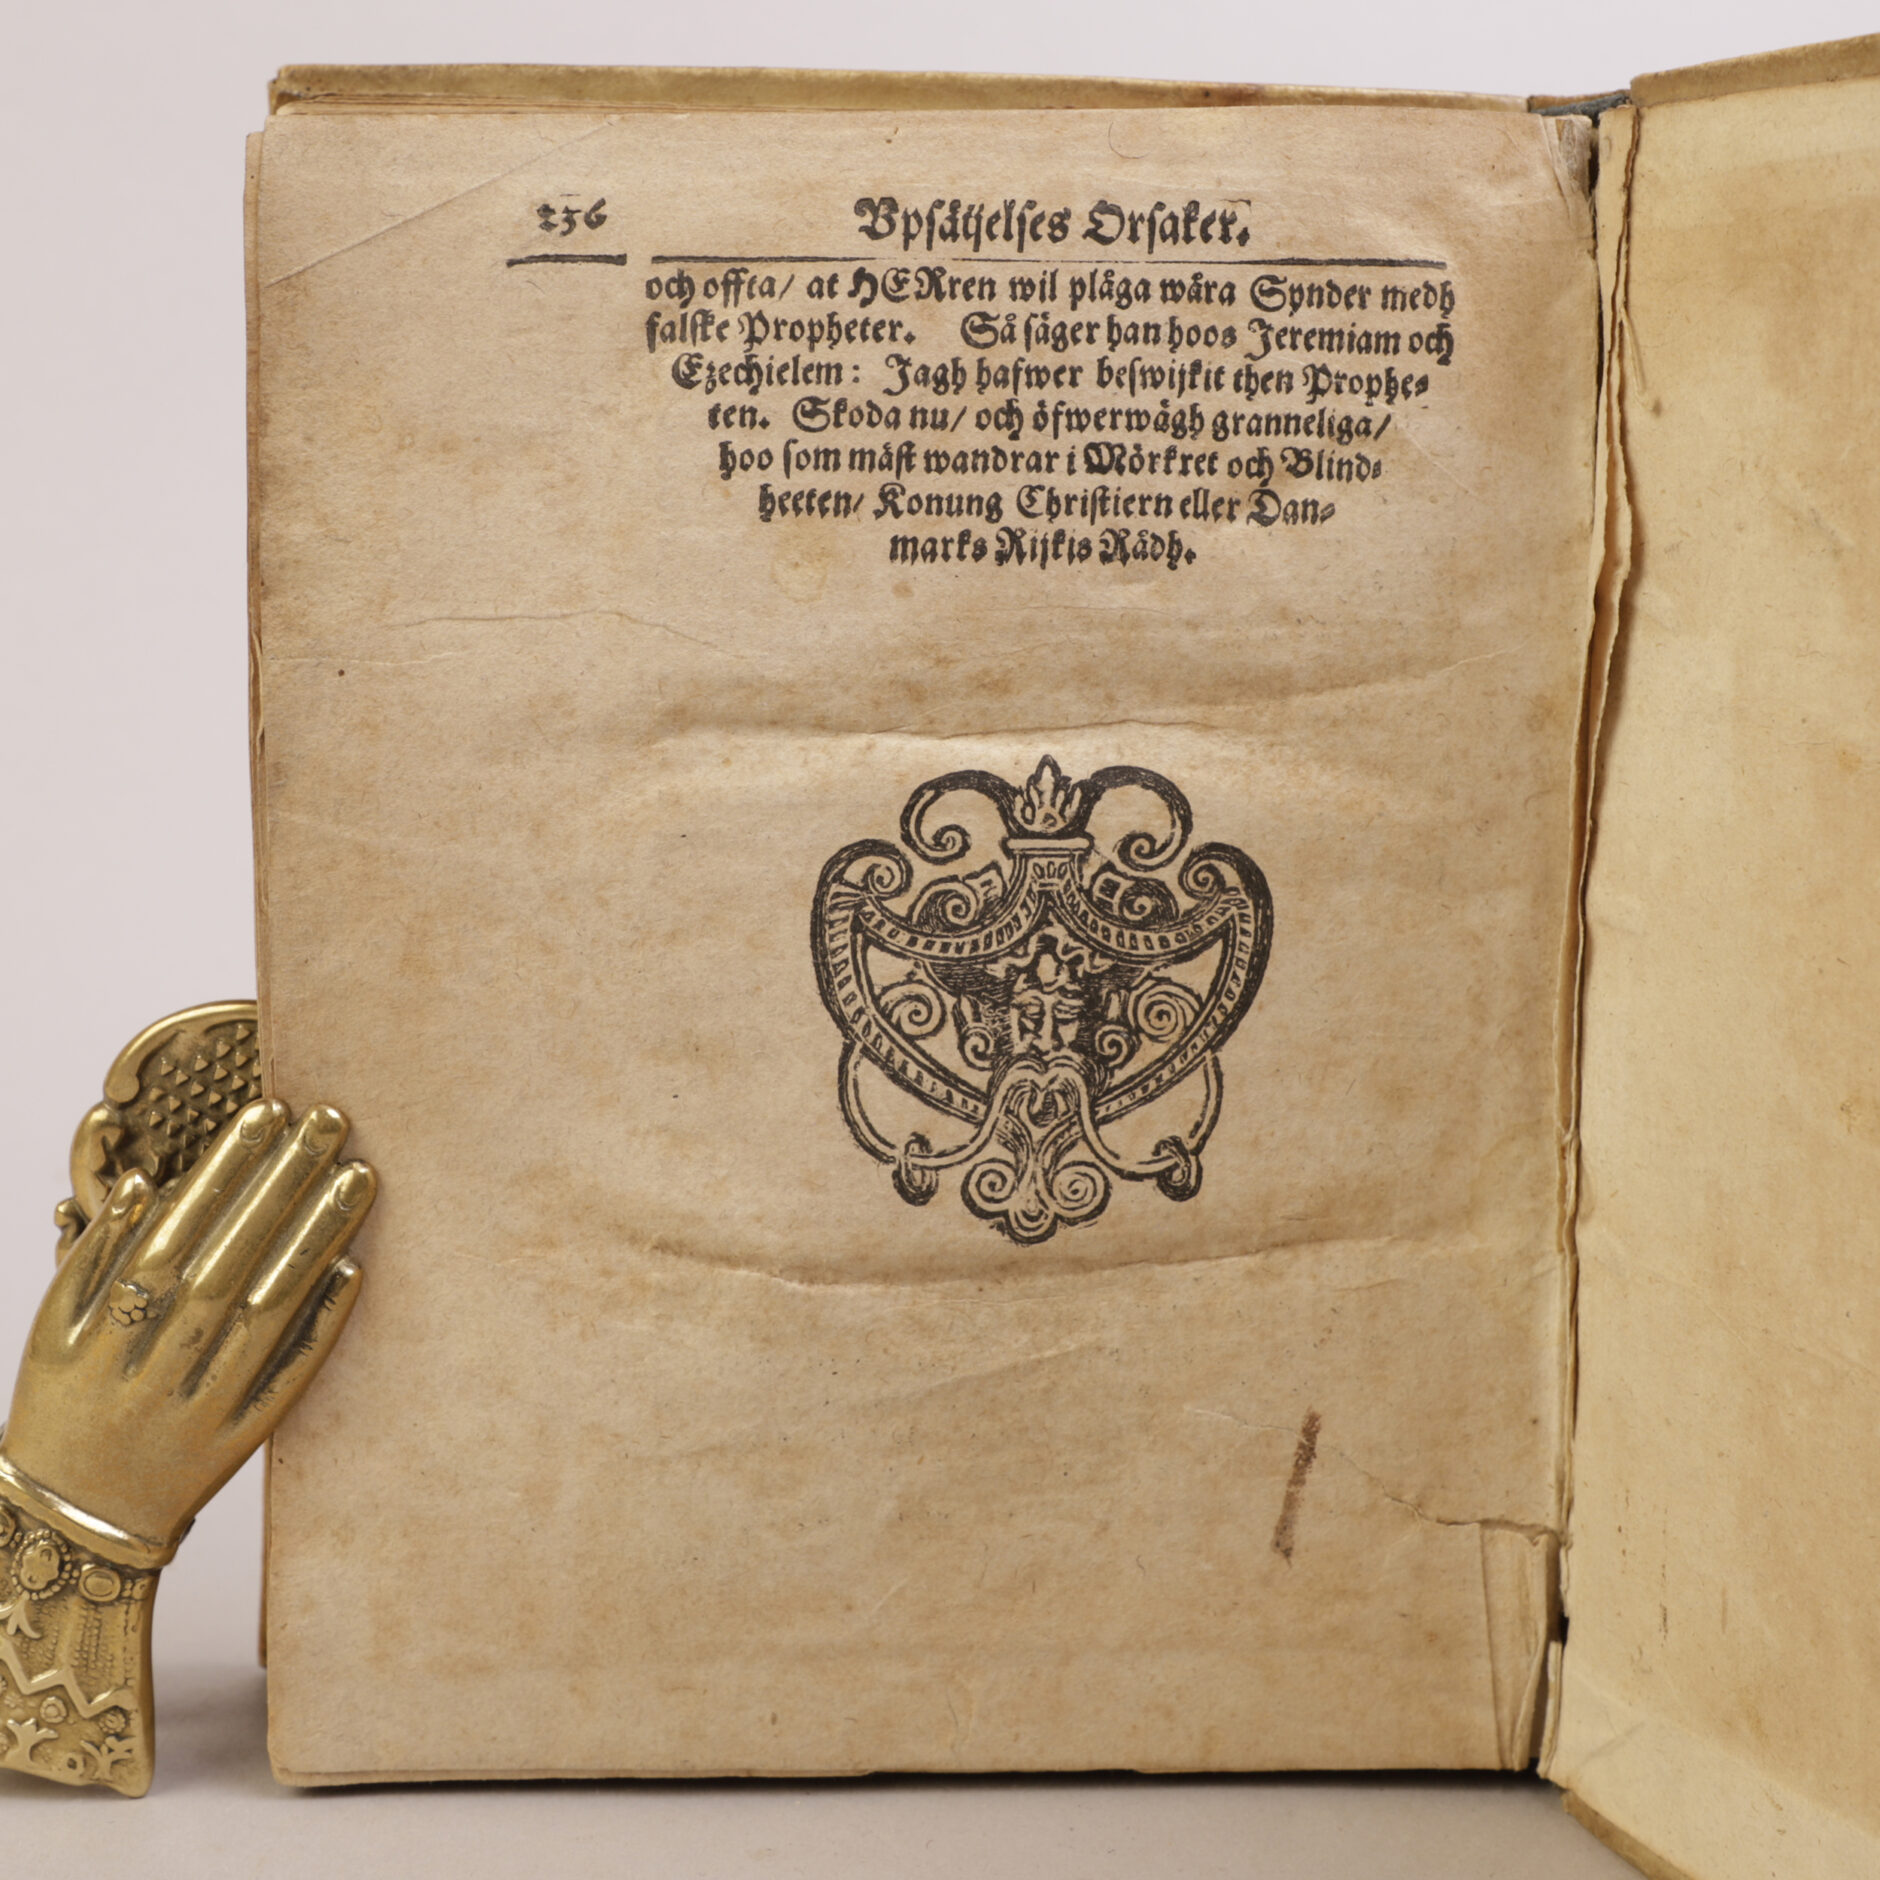 236 Vpsätjelses Orsaker.
och offta/ at HERren wil plåga wåra Synder medh
falske Propheter. Så säger han hoos Jeremiam och
Ezechielem: Jagh hafwer beswijkit then Prophe-
ten. Skoda nu/ och öfwerwägh granneliga/
hoo som mäst wandrar i Mörkret och Blind-
heeten/ Konung Christiern eller Dan-
marks Rijkis Rådh.